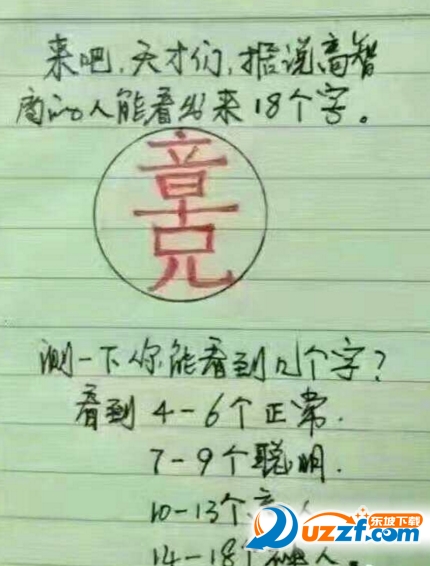 来吧，天才们，据说高智
商的人能看出来18个字。
章
兄
测一下你能看到几个字？
看到 4-6个正常.
7-9个聪明.
10-13个
14-18个 人.
东坡下载
uzzf.com